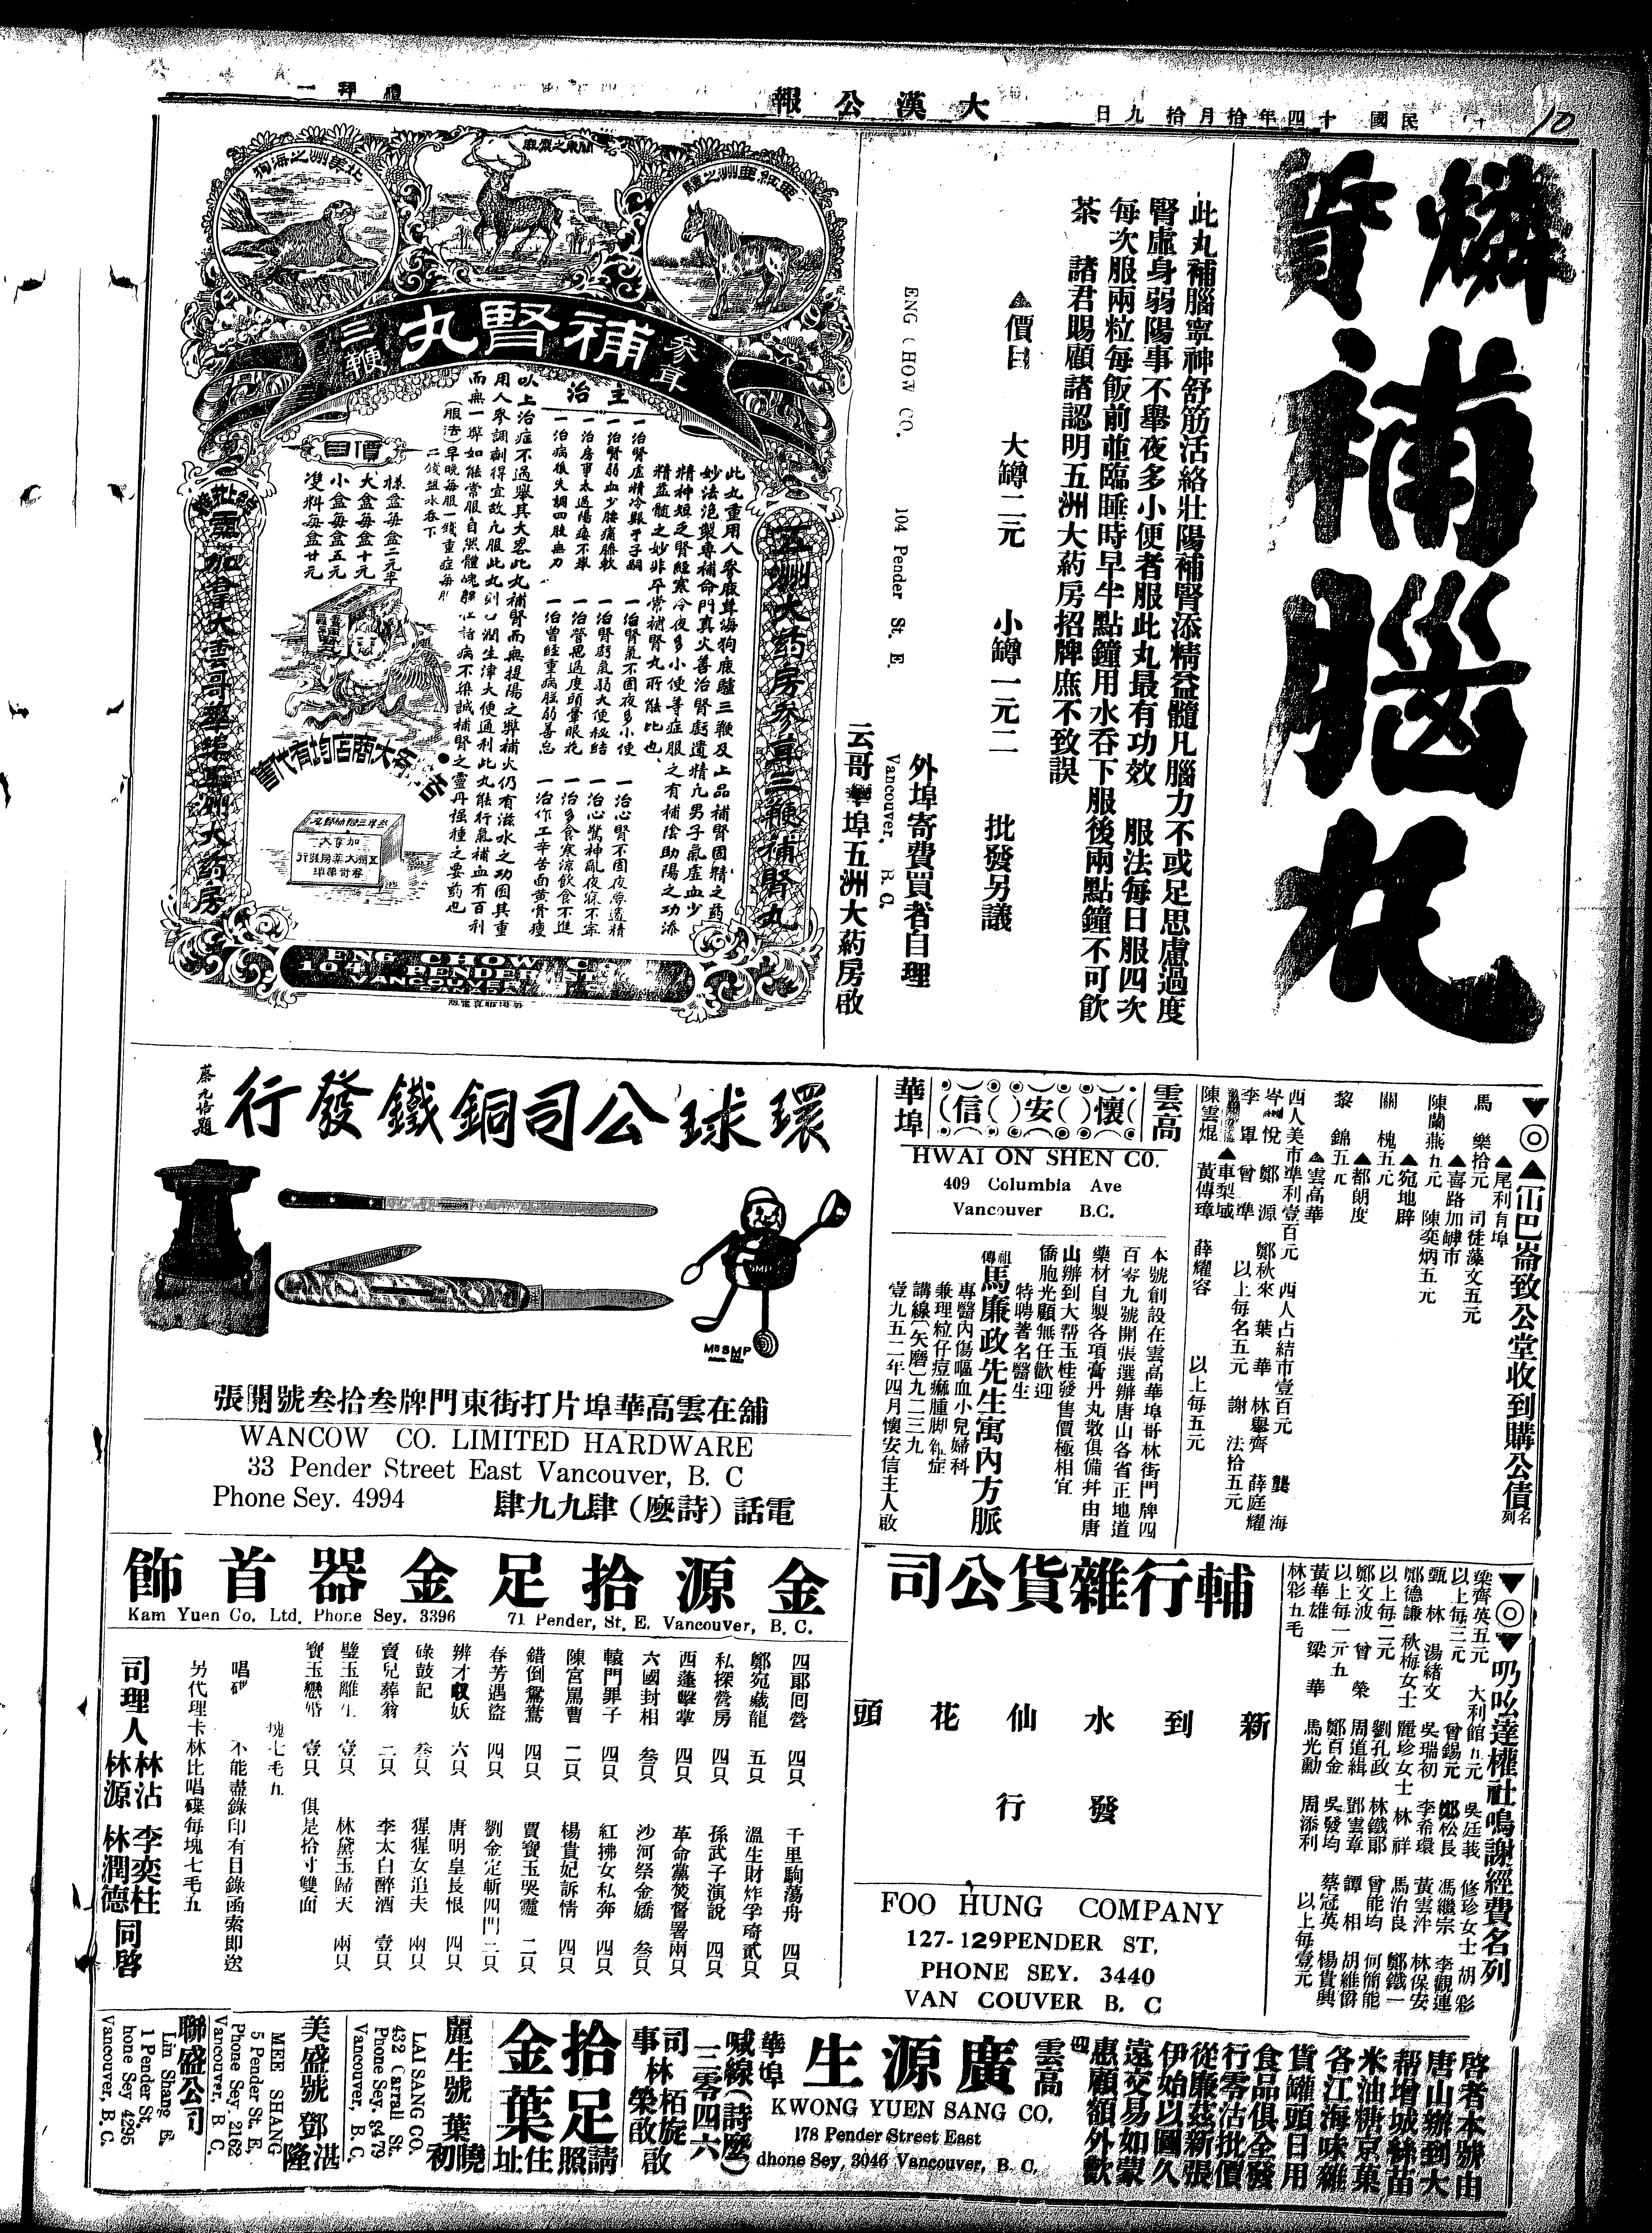 民國十四年拾月拾九日
大漢公報
禮拜一
10
燐質補腦丸
此丸補腦寧神舒筋活絡壯陽補腎添精益髓凡腦力不或足思慮過度
腎虛身弱陽事不舉夜多小便者服此丸最有功效 服法每日服四次
每次服兩粒每飯前並臨睡時早半點鐘用水吞下服後兩點鐘不可飲
茶 諸君賜顧諸認明五洲大葯房招牌庶不致誤
▲價目 大罇二元 小罇一元二 批發另議
外埠寄費買者自理
ENG CHOW CO. 104 Pender St. E. Vancouver, B. C.
云哥華埠五洲大葯房啟
亞細亞洲之驢
關東之鹿
北美洲之海狗
參茸補腎丸三鞭
五洲大药房參茸三鞭補腎丸
此丸重用人參鹿茸海狗鹿驢三鞭及上品補腎固精之葯
妙法泡製專補命門真火善治腎虧遺精凢男子氣虛血少
精神短乏腎經寒冷夜多小便等症服之有補陰助陽之功添
精益髓之妙非平常補腎丸所能比也
主治
一治腎虛精冷艱于子嗣
一治腎氣不固夜多小便
一治心腎不固夜夢遺精
一治腎弱血少腰痛膝軟
一治腎虧氣弱大便秘結
一治心驚神亂夜寐不寧
一治房事太過陽痿不舉
一治營思過度頭暈眼花
一治多食寒涼飲食不進
一治病後失調四肢無力
一治曾經重病胵弱善忘
一治作工辛苦面黃骨瘦
以上治症不過舉其大畧此丸補腎而無提陽之弊補火仍有滋水之功因其重
用人參調劑得宜故凢服此丸則潤生津大便通利此丸能行氣補血有百利
而無一弊如能常服自然體魄諸病不染誠補腎之靈丹掹種之要葯也
(服法)早晚每服一錢重症每服
二錢盐水吞下
價目
樣盒每盒二元半
大盒每盒十元
小盒每盒五元
雙料每盒廿元
各大商店均有代售
加拿大雲哥華埠五洲大药房
ENG CHOW CO
104 PENDER ST E
VANCOUVER
CANADA
▼◎▲冚巴崙致公堂收到購公債名列
▲尾利有埠
馬樂拾元 司徒藻文五元
▲喜路加㘵市
陳蘭燕五元 陳奕炳五元
▲宛地辟
關槐五元
▲都朗度
黎錦五元
▲雲高華
西人美市準利壹百元 西人占結市壹百元 龔海
岑悅 鄭源 鄭秋來 葉華 林舉齊 薛庭耀
李軍 曾準 以上每名五元 謝法拾五元
▲車梨城
陳雲焜 黃傳璋 薛耀容 以上每五元
雲高
懷安信
華埠
HWAI ON SHEN CO.
409 Columbia Ave
Vancouver B.C.
本號創設在雲高華埠哥林街門牌四
百零九號開張選辦唐山各省正地道
藥材自製各項膏丹丸散俱備幷由唐
山辦到大帮玉桂發售價極相宜
僑胞光顧無任歡迎
特聘著名醫生
祖傳馬廉政先生寓內方脈
專醫內傷嘔血小兒婦科
兼理粒仔痘痲腫脚雜症
講線(矢磨)九二三九
壹九五二年四月懷安信主人啟
環球公司銅鐵發行
蔡九培題
MR SMP
舖在雲高華埠片打街東門牌叁拾叁號開張
WANCOW CO. LIMITED HARDWARE
33 Pender Street East Vancouver, B. C
Phone Sey. 4994
電話(詩麽)肆九九肆
▼◎▼叻吆達權社鳴謝經費名列
梁齊英五元 大利館五元 吳廷莪 修珍女士 胡彩
以上每三元 曾錫元 鄭松長 馮繼宗 李觀連
甄林 湯緒文 吳瑞初 李希環 黃雲泮 林保安
鄭德謙 秋梅女士 麗珍女士 林祥 馬治良 鄭鐵一
以上每二元 劉孔政 林鐵郎 曾能均 何簡能
鄭文波 曾榮 周道緝 鄧雲章 譚相 胡維爵
以上每一元五 鄭百金 吳發均 蔡冠英 楊貴興
黃華雄 梁華 馬光勳 周添利 以上每壹元
林彩五毛
輔行雜貨公司
新到水仙花頭
發行
FOO HUNG COMPANY
127-129PENDER ST.
PHONE SEY. 3440
VAN COUVER B. C
金源拾足金器首飾
Kam Yuen Co. Ltd. Phone Sey. 3396 71 Pender, St, E. Vancouver, B. C.
四郎囘營 四只 千里駒蕩舟 四只
鄭宛藏龍 五只 溫生財炸孚琦 貳只
私探營房 四只 孫武子演說 四只
西蓬擊掌 四只 革命黨焚督署 兩只
六國封相 叁只 沙河祭金嬌 叁只
轅門罪子 四只 紅拂女私奔 四只
陳宮罵曹 二只 楊貴妃訴情 四只
錯倒鴛鴦 四只 賈寶玉哭靈 二只
春芳遇盜 四只 劉金定斬四門 二只
辨才収妖 六只 唐明皇長恨 四只
碌鼓記 叁只 猩猩女追夫 兩只
賣兒葬翁 二只 李太白醉酒 壹只
璧玉離生 壹只 林黛玉歸天 兩只
寶玉戀婚 壹只 俱是拾寸雙面
塊七毛九
唱碟 不能盡錄印有目錄函索卽送
另代理卡林比唱碟每塊七毛五
司理人 林沾 李奕柱 林源 林潤德 同啓
啓者本號由
唐山辦到大
帮增城絲苗
米油糖京菓
各江海味雜
貨罐頭日用
食品俱全發
行零沽批價
從廉茲新張
伊始以圖久
遠交易如蒙
惠顧額外歡
迎
雲高
廣源生
華埠
KWONG YUEN SANG CO.
178 Pender Street East
dhone Sey, 3046 Vancouver, B. C.
喊線(詩麽)
三零四六
司事 林栢旋 林榮啟 啟
拾足金葉
請照住址
麗生號 葉曉初
LAI SANG CO.
432 Carrall St.
Phone Sey. 8479
Vancouver, B. C.
美盛號 鄧湛隆
MEE SHANG
5 Pender St. E,
Phone Sey. 2162
Vancouver, B. C.
聯盛公司
Lin Shang E.
1 Pender St.
hone Sey 4295
Vancouver, B. C.